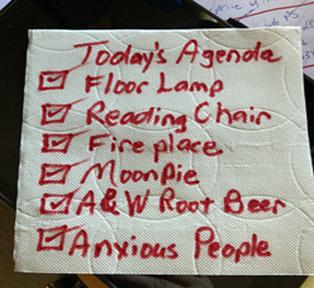 Today's Agenda
☑ Floor Lamp
☑ Reading Chair
☑ Fire place
☑ MoonPie
☑ A&W Root Beer
☑ Anxious People